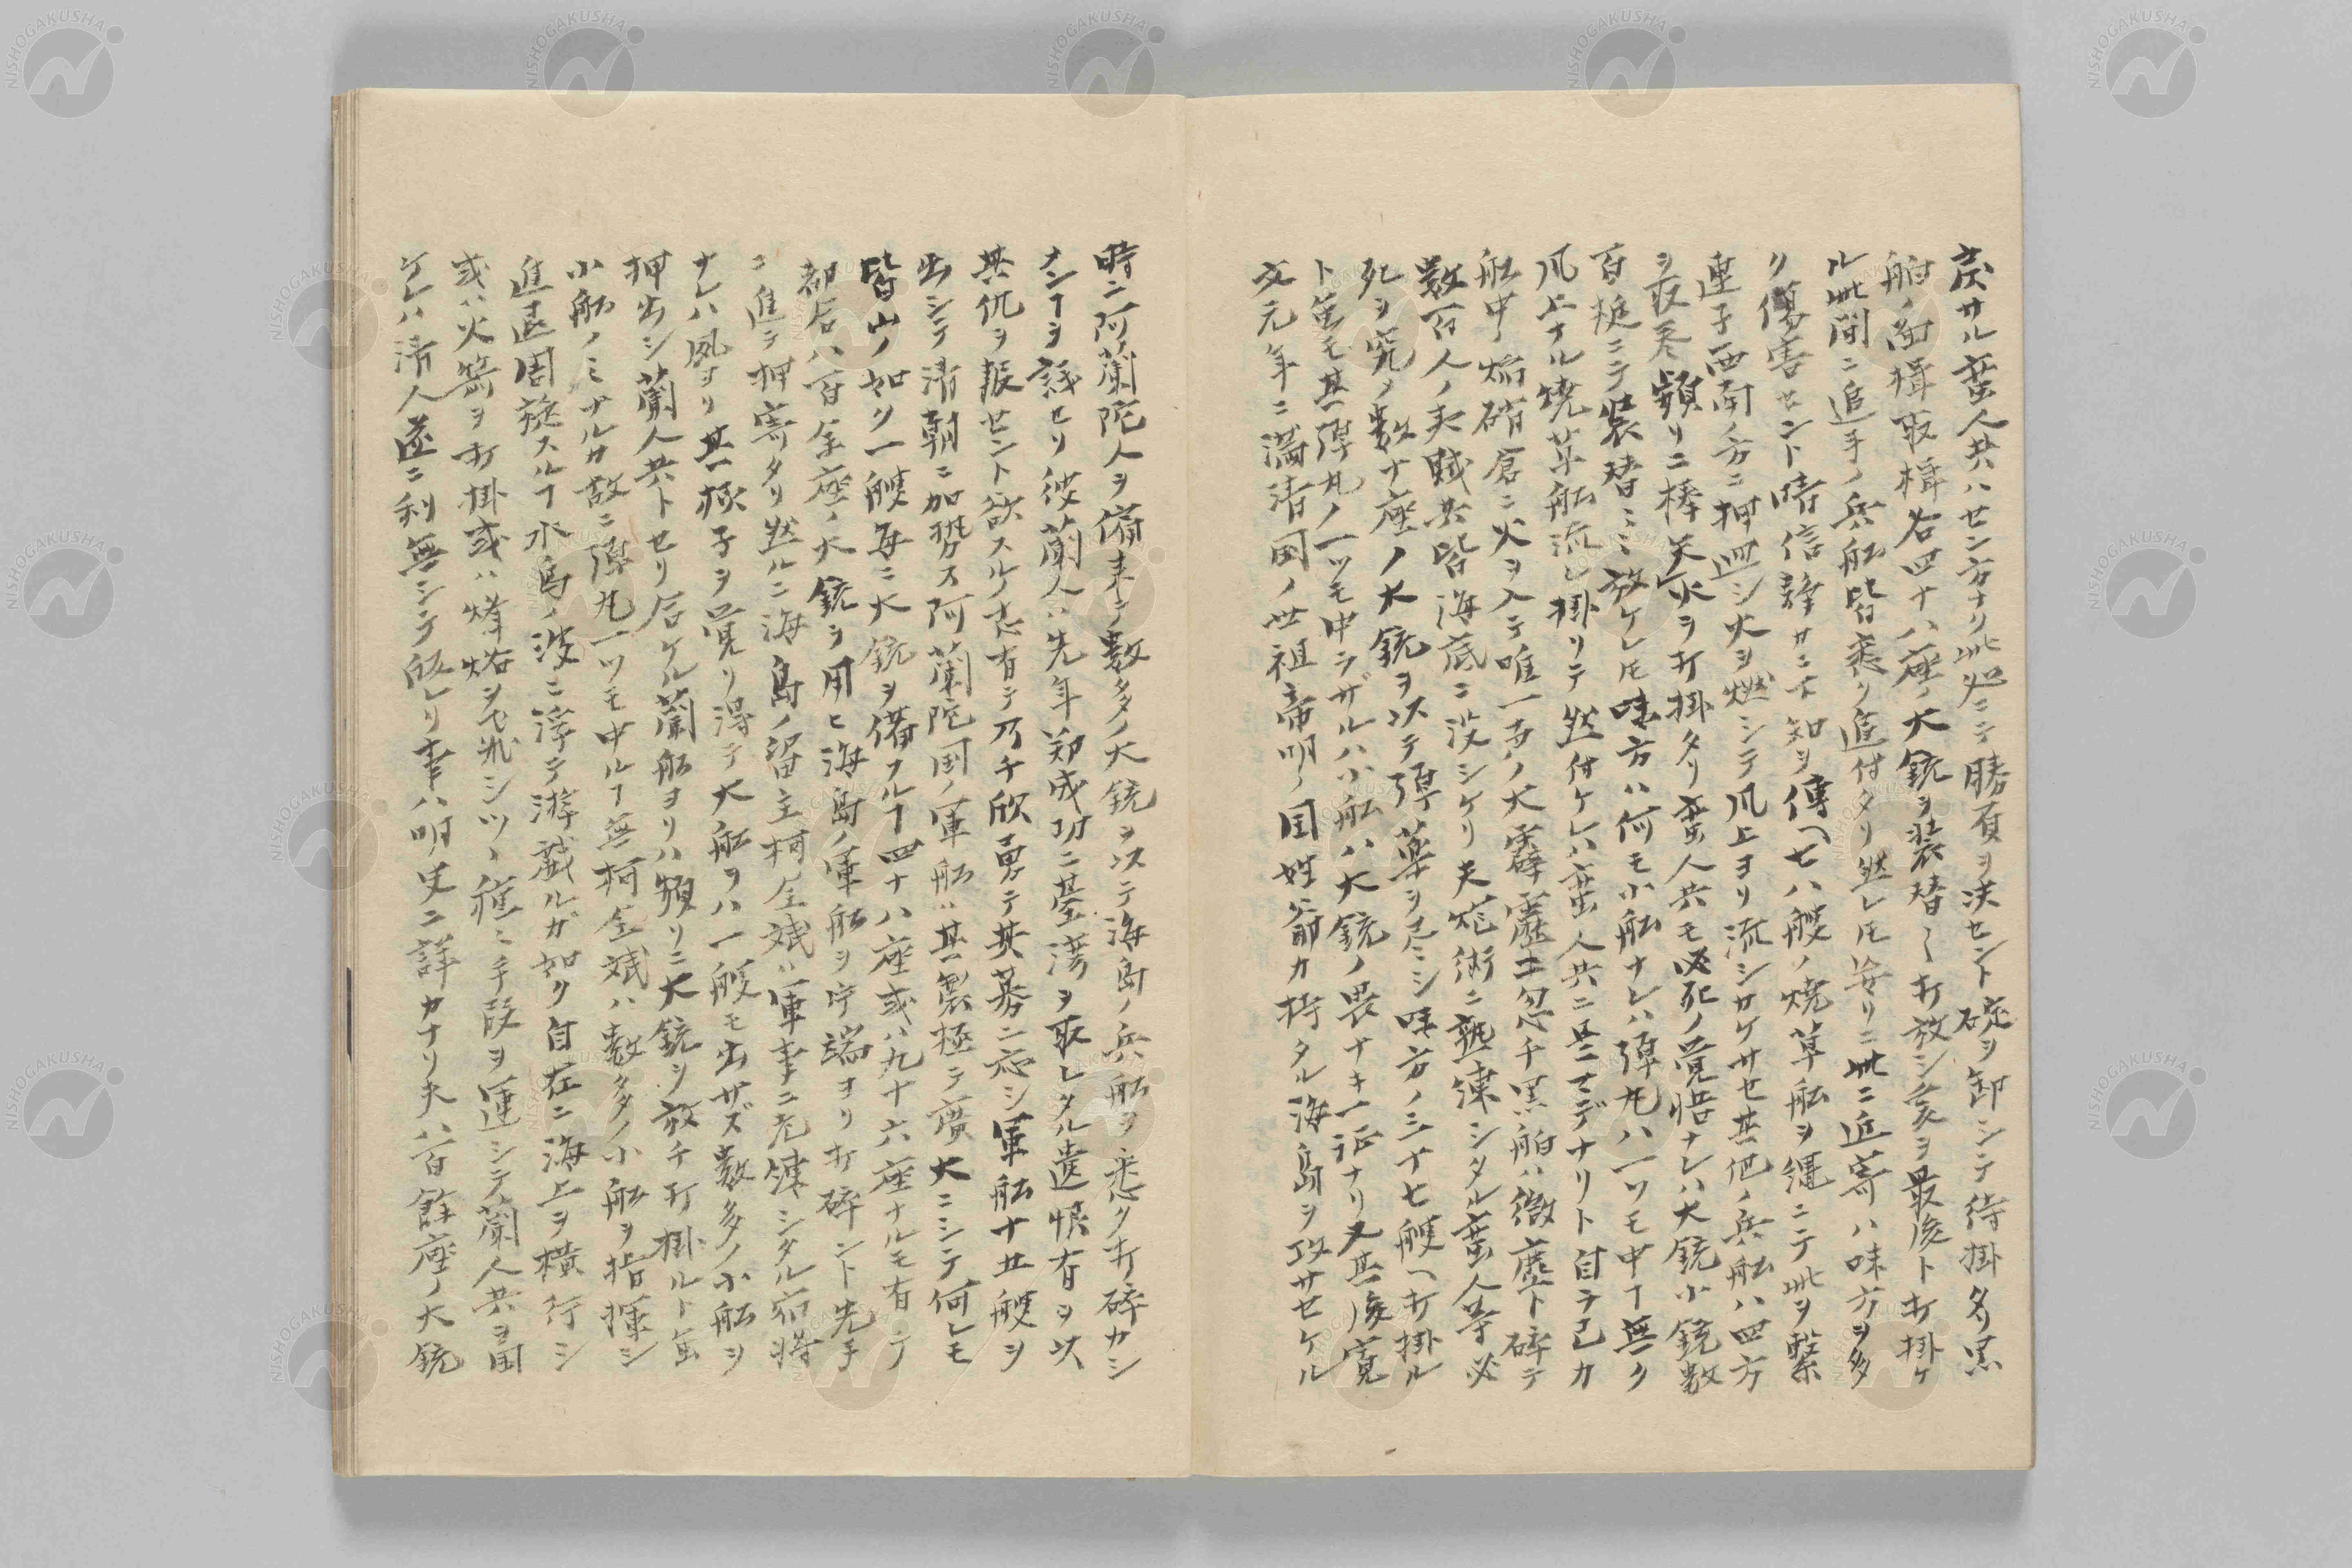 戻サル蛮人共ハセン方ナリ此処ニテ勝負ヲ決セント碇ヲ卸シテ待掛タ黒
舶ノ面楫取楫右四十八座ノ大銃ヲ装替〻打放シ爰ヲ最後ト打掛ケ
ル此間ニ追手ノ兵舩皆乗リ追付タリ然レ𪜈妄リニ此ニ近寄ハ味方ヲ多
ク傷害セント時信諱サニ不知ヲ傳ヘ七八艘ノ焼草舩ヲ縄ニテ此ヲ繋
連子西南ノ方ニ押廻シ火ヲ燃シテ風上ヨリ流シカケサセ其他ノ兵舩ハ四方
ヲ取巻頻リニ棒火矢ヲ打掛タリ蛮人共モ必死ノ覚悟ナレハ大銃小銃数
百挺ニテ装替〻放ケレ𪜈味方ハ何モ小舩ナレハ弾丸ハ一ツモ中ヿ無ク
風上ナル焼草舩流レ掛リテ然付ケレハ蛮人共ニ是マデナリト自ラ己カ
舩中ノ焔硝倉ニ火ヲ入テ唯一声ノ大霹靂エ忽チ黒舶ハ微塵ト碎テ
数百人ノ夷賊共皆海底ニ没シケリ夫炮術ニ熟練シタル蛮人等必
死ヲ究メ数十座ノ大銃ヲ以テ弾藥ヲ尽シ味方ノ三十七艘ヘ打掛ル
ト𧈧モ其弾丸ノ一ツモ中ラザルハ小舩ハ大銃ノ畏ナキ一証ナリ又其後寛
文元年ニ満清国ノ世祖帝明ノ国姓爺カ持タル海島ヲ攻サセケル
時ニ阿蘭陀人ヲ備来テ數多ノ大銃ヲ以テ海島ノ兵舩ヲ悉ク打碎カシ
メンヿヲ議セリ彼蘭人ハ先年郑成功ニ䑓湾ヲ取レタル遺恨有ヲ以
其仇ヲ報セント欲スルノ志有テ乃チ欣勇テ其募ニ応シ軍舩十五艘ヲ
出シテ清朝ニ加勢ス阿蘭陀国ノ軍舩ハ其製極テ廣大ニシテ何レモ
皆山ノ如ク一艘毎ニ大銃ヲ備フルヿ四十八座或ハ九十六座ナルモ有テ
都合ハ百余座ノ大銃ヲ用ヒ海島ノ軍舩ヲ片端ヨリ打碎ント先手
ニ進テ押寄タリ然ルニ海島ノ留主柯全斌ハ軍事ニ老練シタル宿將
ナレハ夙ヨリ其様子ヲ覚リ得テ大舩ヲハ一艘モ出サズ數多ノ小舩ヲ
押出シ蘭人共トセリ合ケル蘭舩ヨリハ頻リニ大銃ヲ放チ打掛ルト𧈧
小舩ノミナルカ故ニ弾丸一ツモ中ルヿ無柯全斌ハ數多ノ小舩ヲ指揮シ
進退周旋スルヿ水鳥ノ波ニ浮テ游戯ルガ如ク自在ニ海上ヲ横行シ
或ハ火箭ヲ打掛或ハ烽烙ヲ飛シツヽ種〻手段ヲ運シテ蘭人共ヲ困
ケレハ清人遂ニ利無シテ皈レリ事ハ明史ニ詳カナリ夫八百餘座ノ大銃